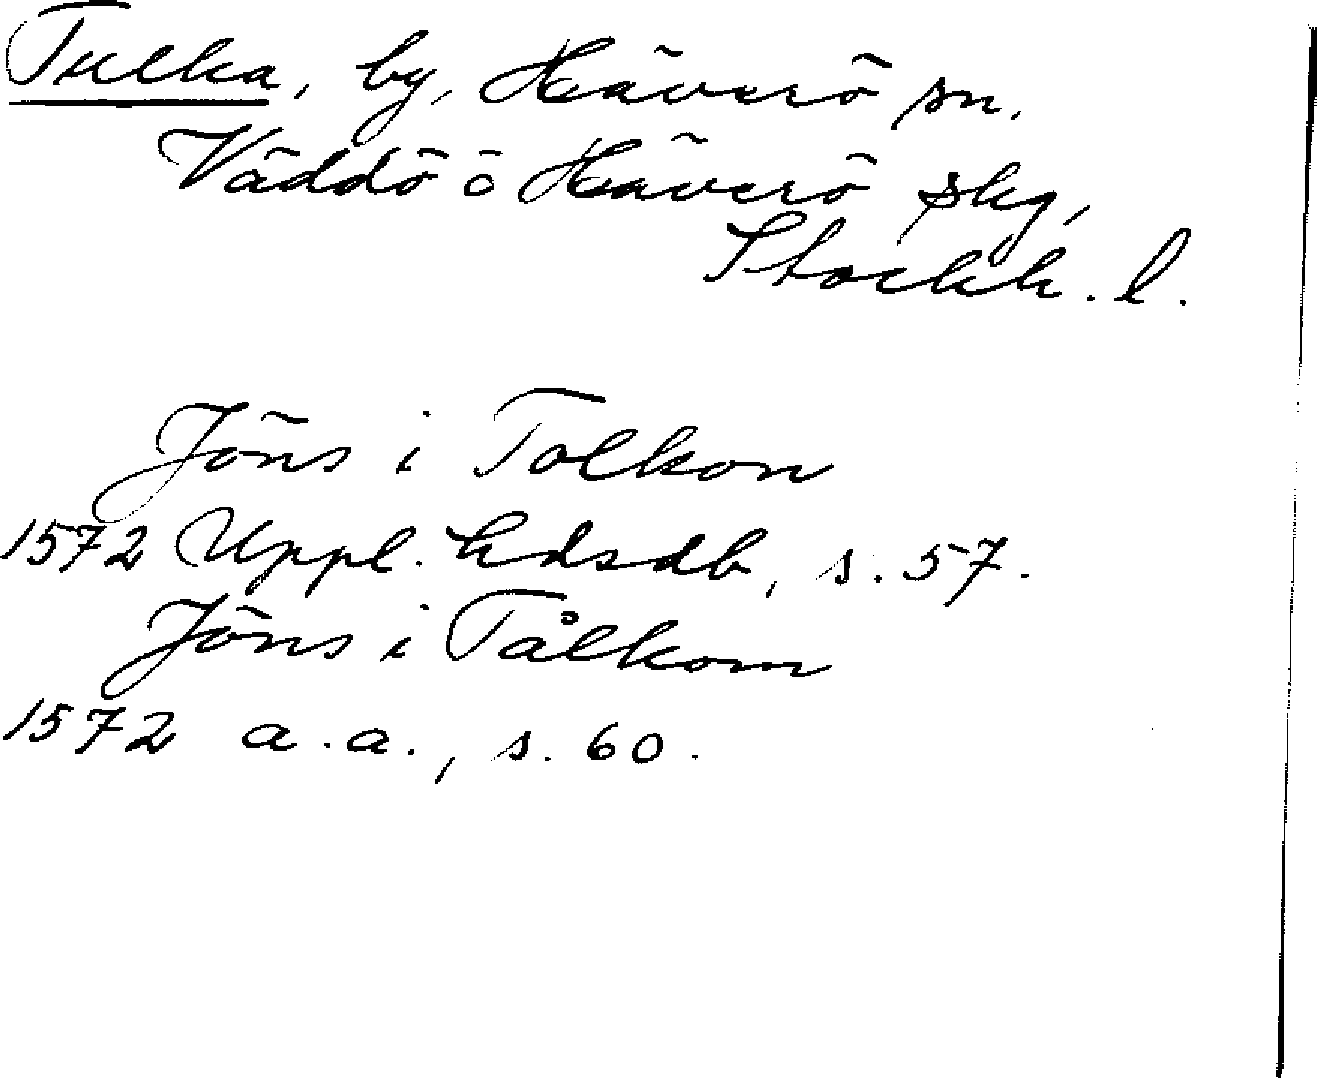 Tulka, by, Häverö sn.
Väddö o Häverö skg,
Stockh. l.
Jöns i Tolkon
1572 Uppl. hdsdb, s. 57.
Jöns i Tålkom
1572 a.a., s. 60.